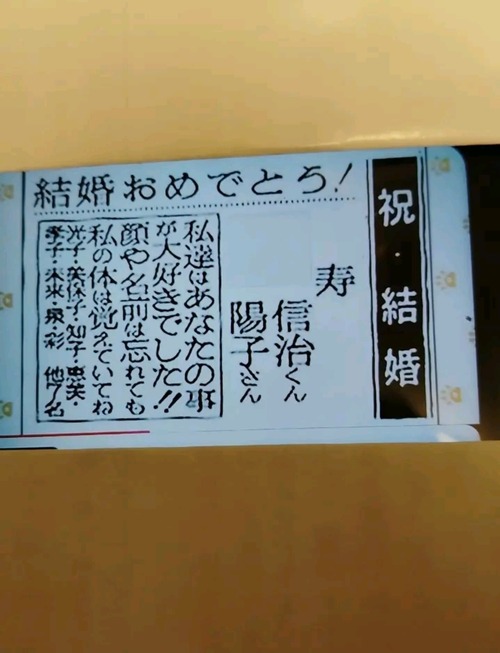 祝・結婚
結婚おめでとう!
寿
信治くん
陽子さん
私達はあなたの事
が大好きでした!!
顔や名前は忘れても
私の体は覚えていてね
光子・美保子・知子・恵美・
季子・未来・泉・彩 他了名